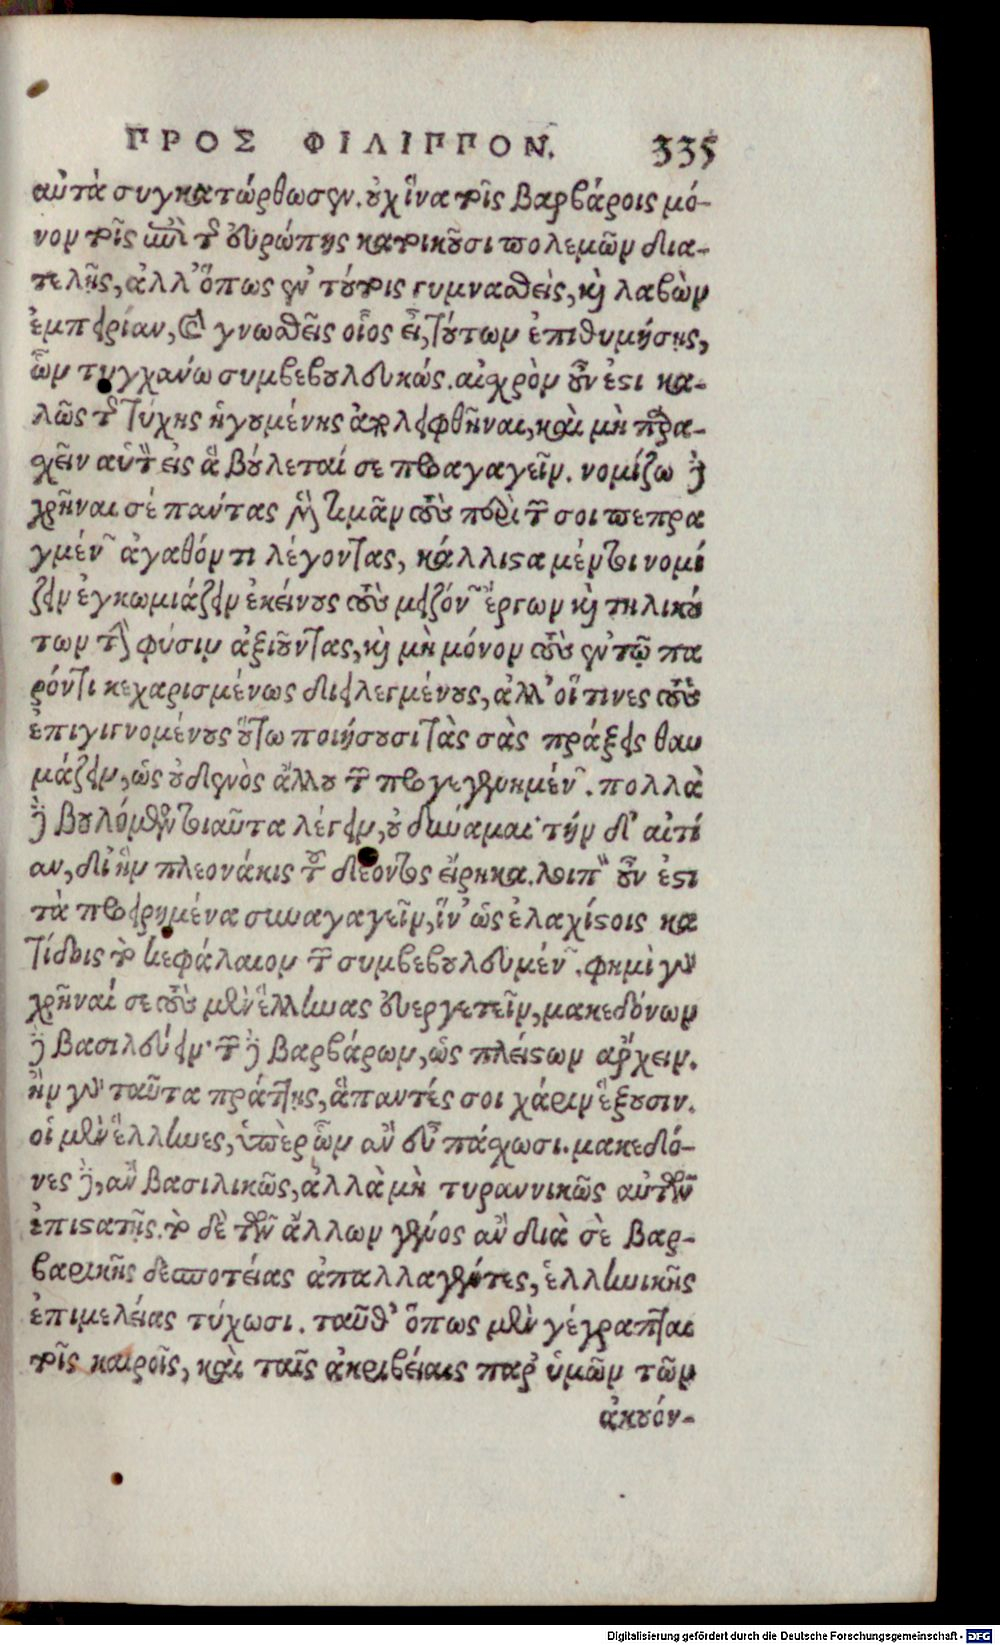 ΠΡΟΣ ΦΙΛΙΠΠΟΝ. 335
αὐτὰ συγκατώρθωσεν. οὐχ ἵνα τοῖς βαρβάροις μό-
νον τοῖς ἐπὶ τῆς εὐρώπης κατοικοῦσι πολεμῶν δια-
τελῇς, ἀλλ' ὅπως ἐν τούτοις γυμνασθεὶς, καὶ λαβὼν
ἐμπειρίαν, καὶ γνωσθεῖς οἷος εἶ, τούτων ἐπιθυμήσῃς,
ὧν τυγχάνω συμβεβουλευκώς. αἰσχρὸν οὖν ἐστι κα-
λῶς τῆς τύχης ἡγουμένης ἀπολειφθῆναι, καὶ μὴ παρα-
σχεῖν αὑτὸν εἰς ἃ βούλεταί σε προαγαγεῖν. νομίζω δὲ
χρῆναι σέ πάντας μὲν τιμᾶν τοὺς περὶ τῶν σοι πεπρα
γμένων ἀγαθόν τι λέγοντας, κάλλιστα μέντοι νομί
ζειν ἐγκωμιάζειν ἐκείνους τοὺς μειζόνων ἔργων καὶ τηλικού
των τὴν φύσιν ἀξιοῦντας, καὶ μὴ μόνον τοὺς ἐν τῷ πα
ρόντι κεχαρισμένως διειλεγμένους, ἀλλ' οἵ τινες τοὺς
ἐπιγιγνομένους οὕτω ποιήσουσι τὰς σὰς πράξεις θαυ
μάζειν, ὡς οὐδενὸς ἄλλου τῶν προγεγενημένων. πολλὰ
δὲ βουλόμενος τοιαῦτα λέγειν, οὐ δύναμαι· τὴν δ' αἰτί
αν, δι' ἣν πλεονάκις τοῦ δέοντος εἴρηκα. λοιπὸν οὖν ἐστι
τὰ προειρημένα συναγαγεῖν, ἵν' ὡς ἐλαχίστοις κα
τίδοις τὸ κεφάλαιον τῶν συμβεβουλευμένων. φημὶ γὰρ
χρῆναί σε τοὺς μὲν ἕλληνας εὐεργετεῖν, μακεδόνων
δὲ βασιλεύειν· τῶν δὲ βαρβάρων, ὡς πλείστων ἄρχειν.
ἢν γὰρ ταῦτα πράττῃς, ἅπαντές σοι χάριν ἕξουσιν.
οἱ μὲν ἕλληνες, ὑπὲρ ὧν ἂν εὖ πάσχωσι. μακεδό-
νες δὲ, ἂν βασιλικῶς, ἀλλὰ μὴ τυραννικῶς αὐτῶν
ἐπιστατῇς. τὸ δὲ τῶν ἄλλων γένος ἂν διὰ σὲ βαρ-
βαρικῆς δεσποτείας ἀπαλλαγέντες, ἑλληνικῆς
ἐπιμελείας τύχωσι. ταῦθ' ὅπως μὲν γέγραπται
τοῖς καιροῖς, καὶ ταῖς ἀκριβείαις παρ' ὑμῶν τῶν
ἀκουόν-
Digitalisierung gefördert durch die Deutsche Forschungsgemeinschaft - DFG